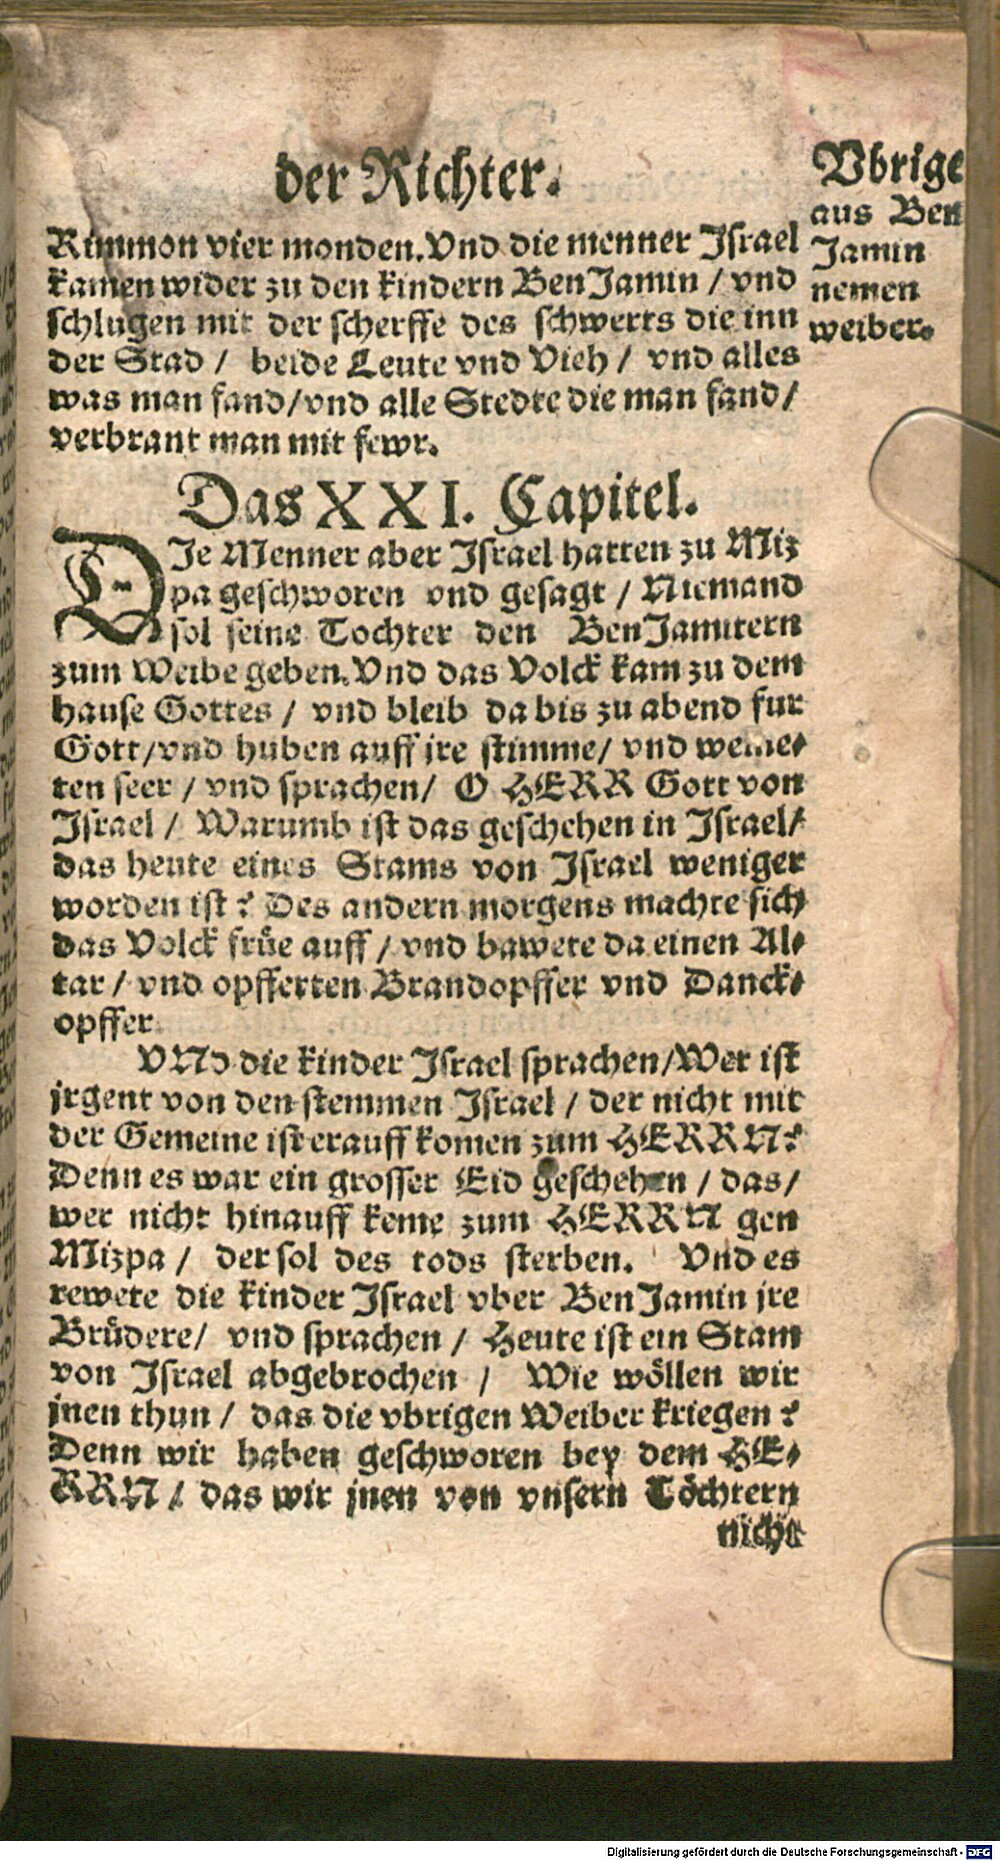 der Richter.
Rimmon vier monden. Vnd die menner Jſrael
kamen wider zu den kindern BenJamin / vnd
ſchlugen mit der ſcherffe des ſchwerts die inn
der Stad / beide Leute vnd Vieh / vnd alles
was man fand / vnd alle Stedte die man fand /
verbrant man mit fewr.
Vbrige
aus Ben
Jamin
nemen
weiber.
Das XXI. Capitel.
DJe Menner aber Jſrael hatten zu Miz
pa geſchworen vnd geſagt / Niemand
ſol ſeine Tochter den BenJamitern
zum Weibe geben. Vnd das Volck kam zu dem
hauſe Gottes / vnd bleib da bis zu abend fur
Gott / vnd huben auff jre ſtimme / vnd weine⸗
ten ſeer / vnd ſprachen / O HERR Gott von
Jſrael / Warumb iſt das geſchehen in Jſrael /
das heute eines Stams von Jſrael weniger
worden iſt? Des andern morgens machte ſich
das Volck früe auff / vnd bawete da einen Al⸗
tar / vnd opfferten Brandopffer vnd Danck⸗
opffer.
VNd die kinder Jſrael ſprachen / Wer iſt
jrgent von den ſtemmen Jſrael / der nicht mit
der Gemeine iſt erauff komen zum HERRN?
Denn es war ein groſſer Eid geſchehen / das /
wer nicht hinauff keme zum HERRN gen
Mizpa / der ſol des tods ſterben. Vnd es
rewete die kinder Jſrael vber BenJamin jre
Brüdere / vnd ſprachen / Heute iſt ein Stam
von Jſrael abgebrochen / Wie wöllen wir
jnen thun / das die vbrigen Weiber kriegen?
Denn wir haben geſchworen bey dem HE⸗
RRN / das wir jnen von vnſern Töchtern
nicht
Digitalisierung gefördert durch die Deutsche Forschungsgemeinschaft - DFG